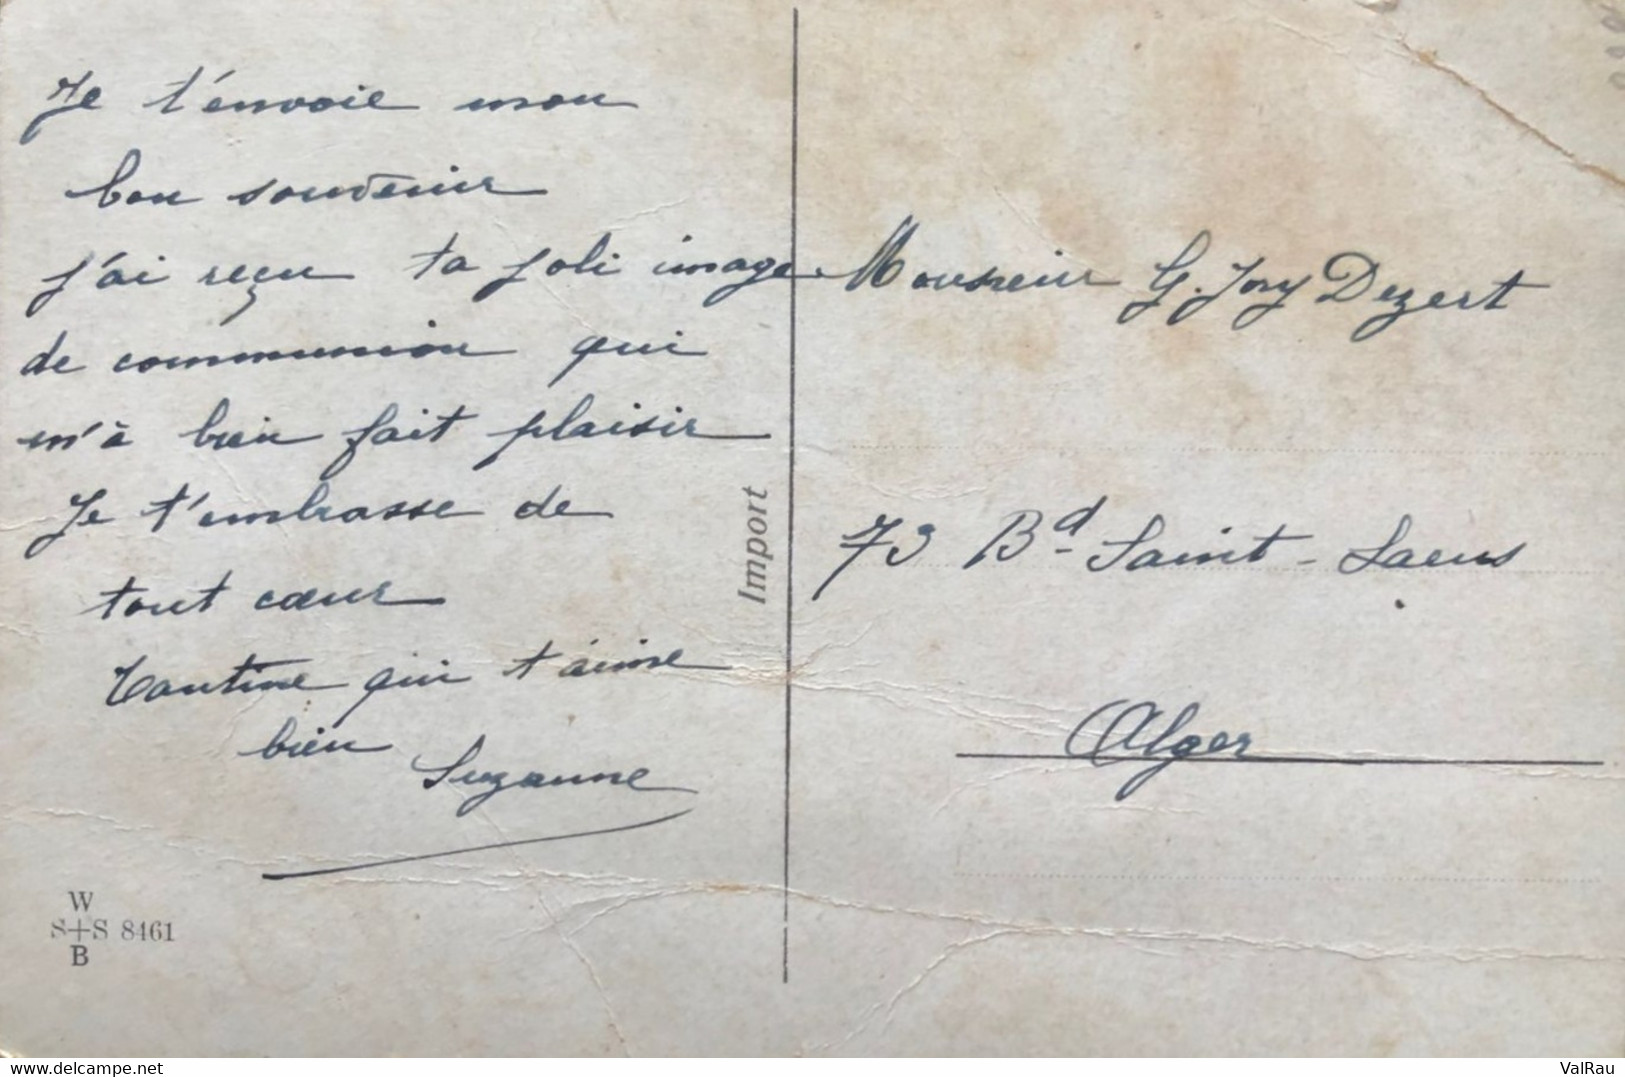 Je t'envoie mon
bon souvenir
j'ai reçu ta joli image
de communion qui
m'à bien fait plaisir
Je t'embrasse de
tout cœur
Tantine qui t'aime
bien
Suzanne
W
S+S 8461
B
Import
Monsieur G. Jory Dezert
73 Bd Saint-Saens
Alger
delcampe.net
ValRau